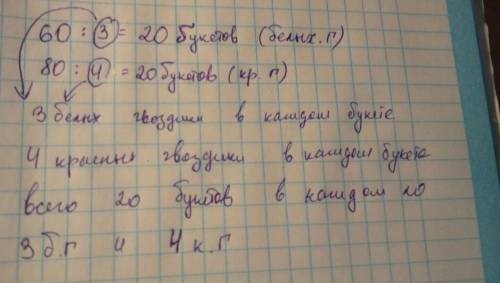 60 : 3 = 20 букетов (белых. г)
80 : 4 = 20 букетов (кр. г)
3 белых гвоздики в каждом букете
4 красных гвоздики в каждом букете
всего 20 букетов в каждом по
3 б.г и 4 к.г